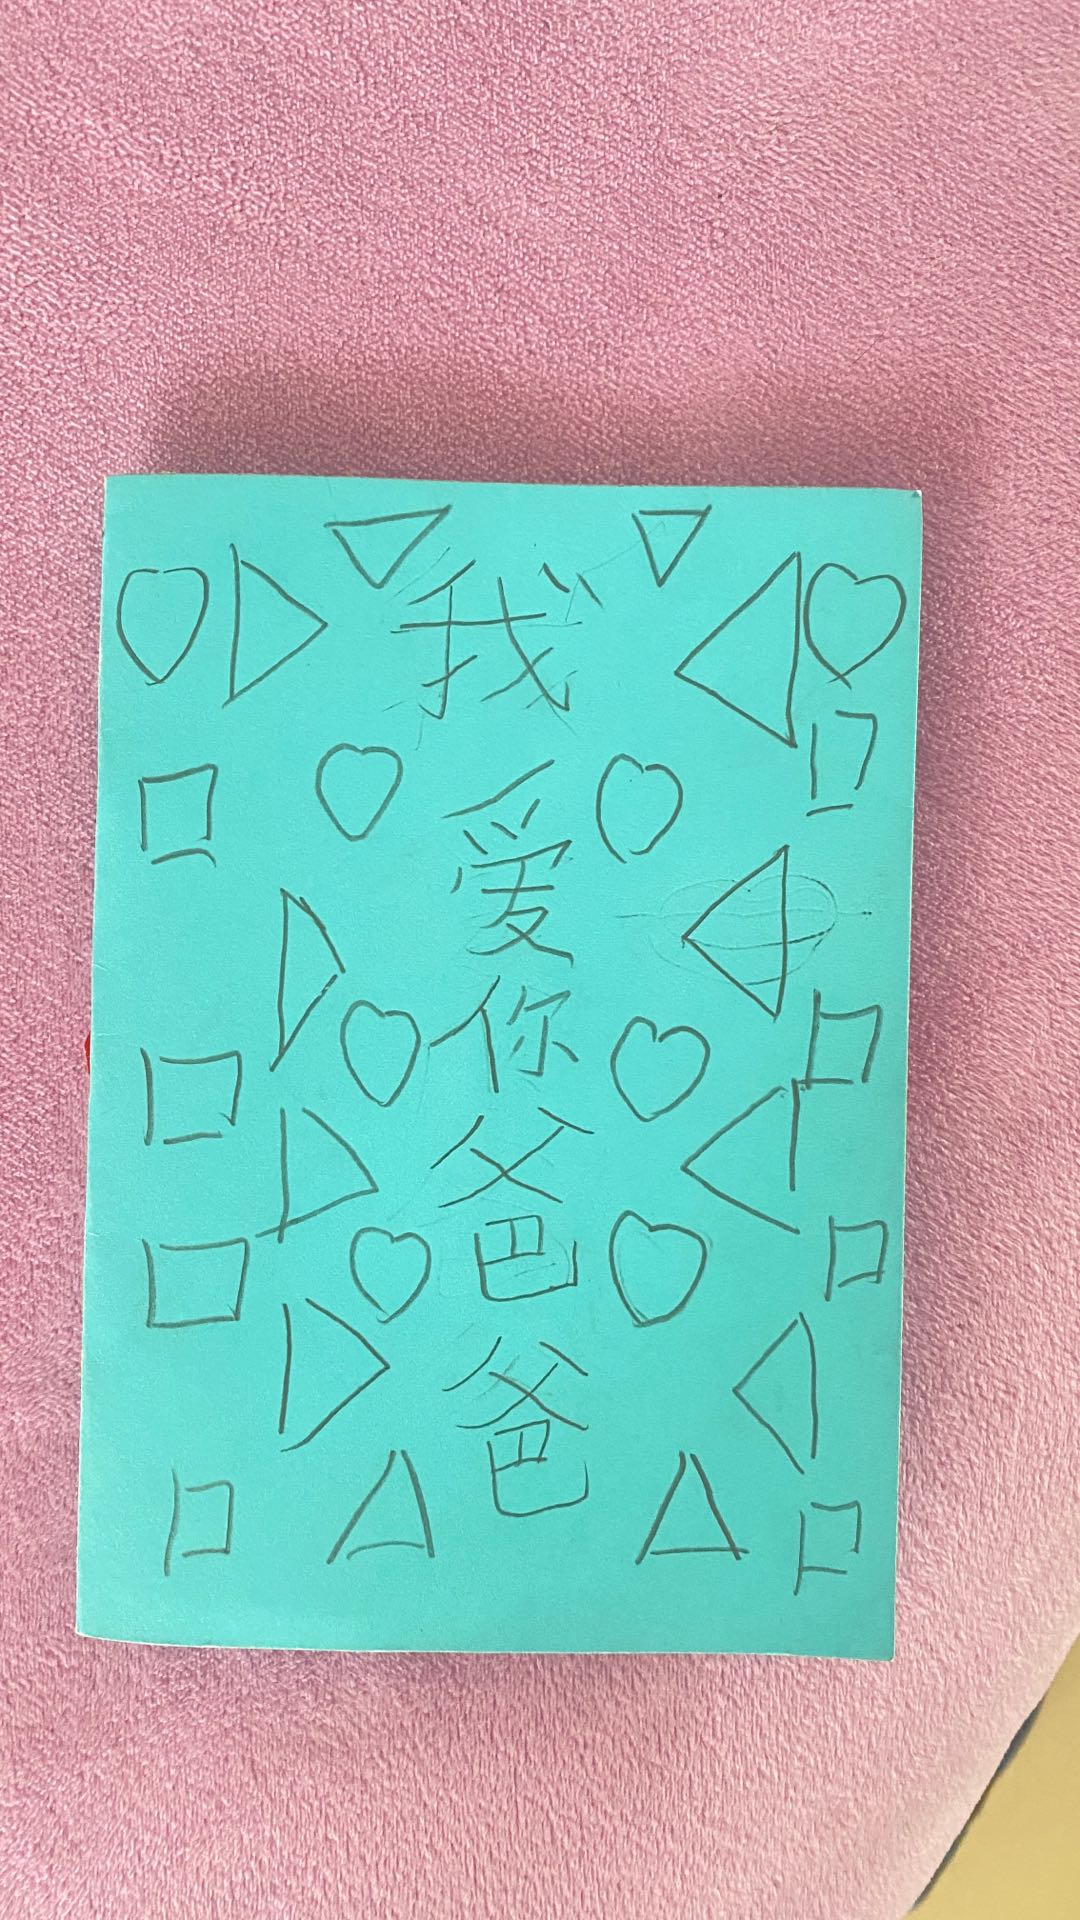 我爱你爸爸